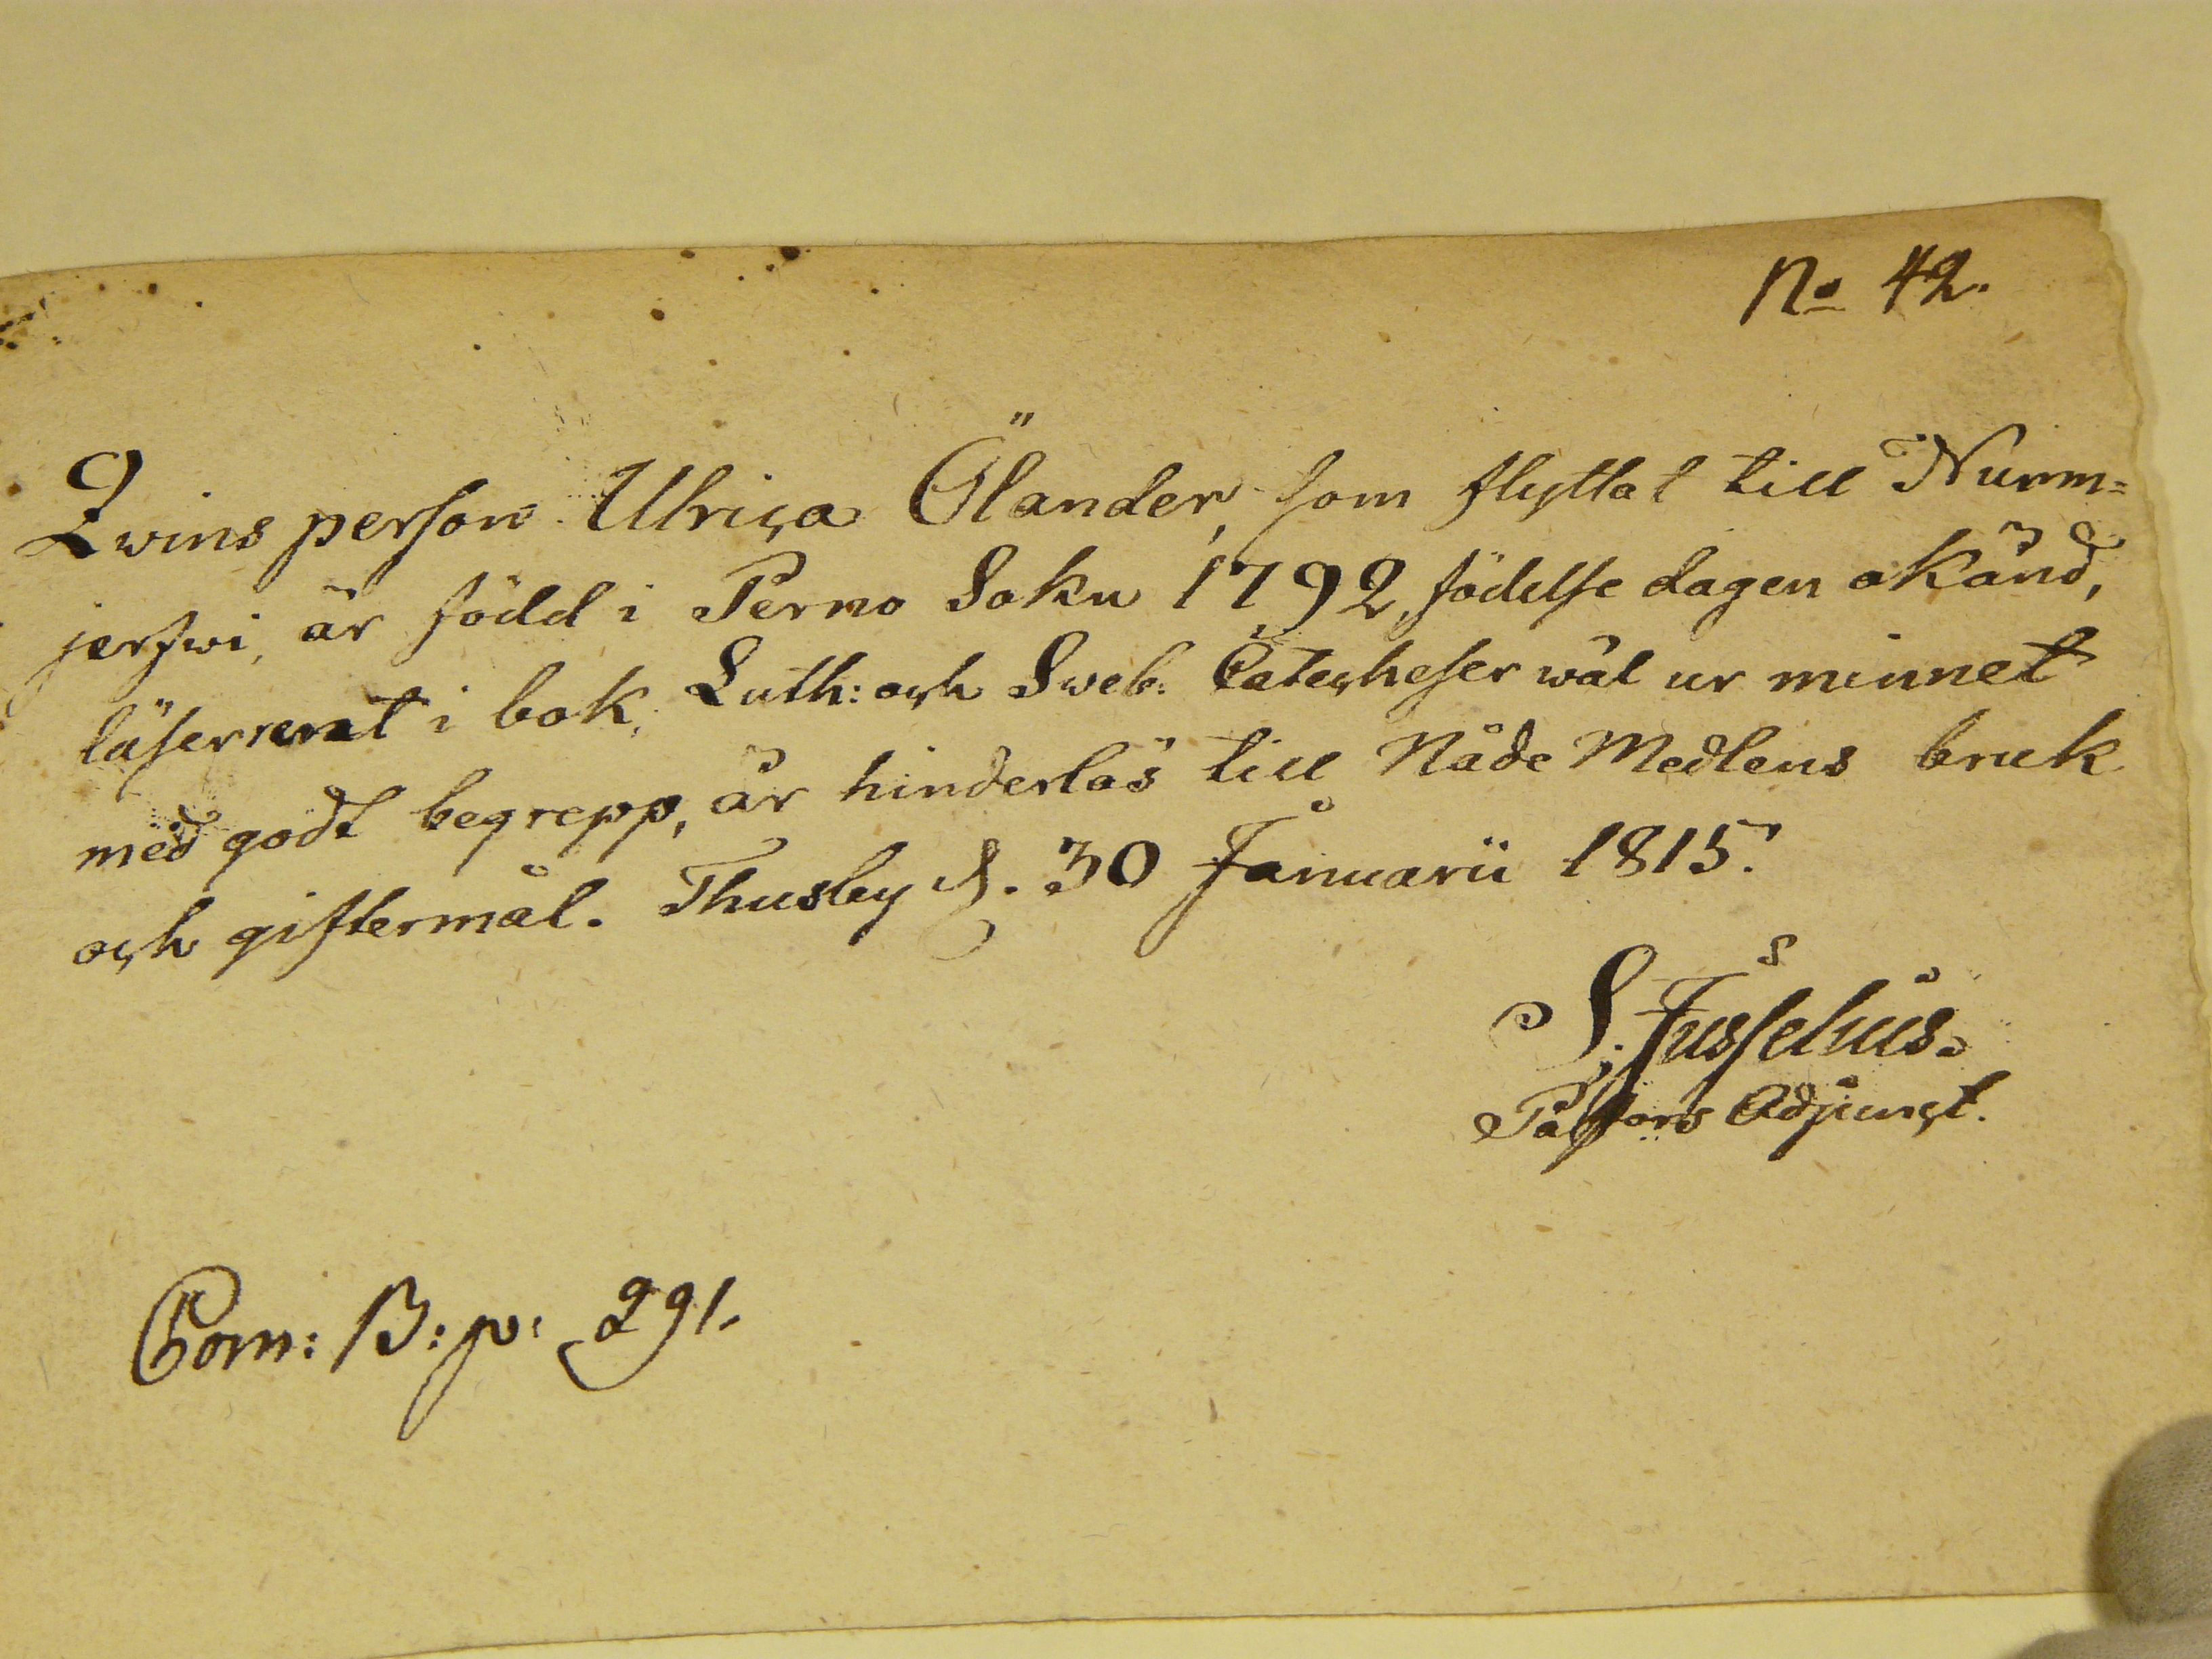 No 42.
Qwins person Ulrica Ölander, som flyttat till Nurm=
jerfwi, är född i Perno Sokn 1792, födelse dagen okänd,
läser rent i bok, Luth: och Sweb. Catecheser wäl ur minnet
med godt begrepp, är hinderlös till Nåde Medlens bruk
och giftermål. Thusby d. 30 Januarii 1815.
S. Jusselius.
Pastors Adjunct.
Com: B: p: 291.